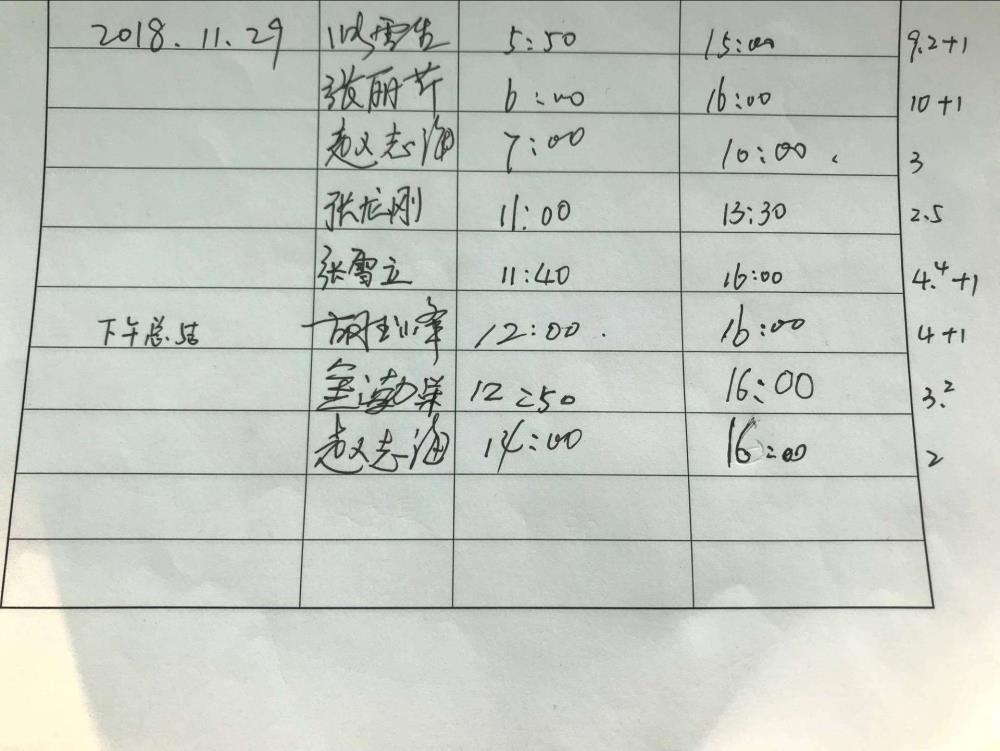 2018.11.29 雪生 5:50 15:00 9.2+1
张丽芹 6:00 16:00 10+1
赵义志海 7:00 10:00 3
张龙刚 11:00 13:30 2.5
张雪立 11:40 16:00 4.4+1
下午总结 胡 峰 12:00 16:00 4+1
金渤梁 12:50 16:00 3.2
赵义志海 14:00 16:00 2